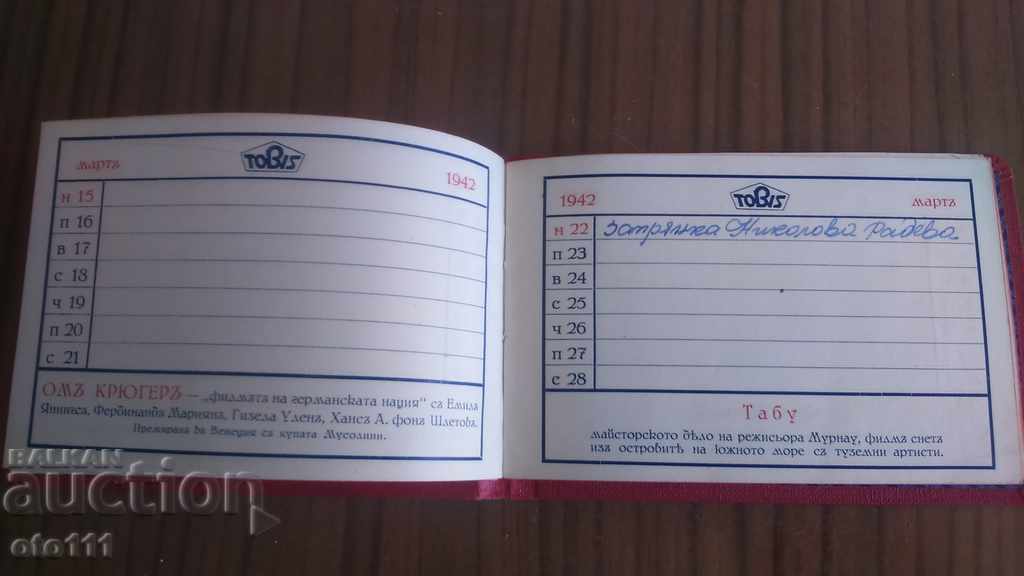 мартъ
TOBIS
1942
н 15
п 16
в 17
с 18
ч 19
п 20
с 21
ОМЪ КРЮГЕРЪ — „филмътъ на германската нация“ съ Емилъ
Янингсъ, Фердинандъ Марианъ, Гизела Уленъ, Хансъ А. фонъ Шлетовъ.
Премирана въ Венеция съ купата Мусолини.
1942
TOBIS
мартъ
н 22 Затрянка Николова Радева
п 23
в 24
с 25
ч 26
п 27
с 28
Табу
майсторското дѣло на режисьора Мурнау, филмъ снетъ
изъ островитѣ на южното море съ туземни артисти.
BALKAN
auction
oto111